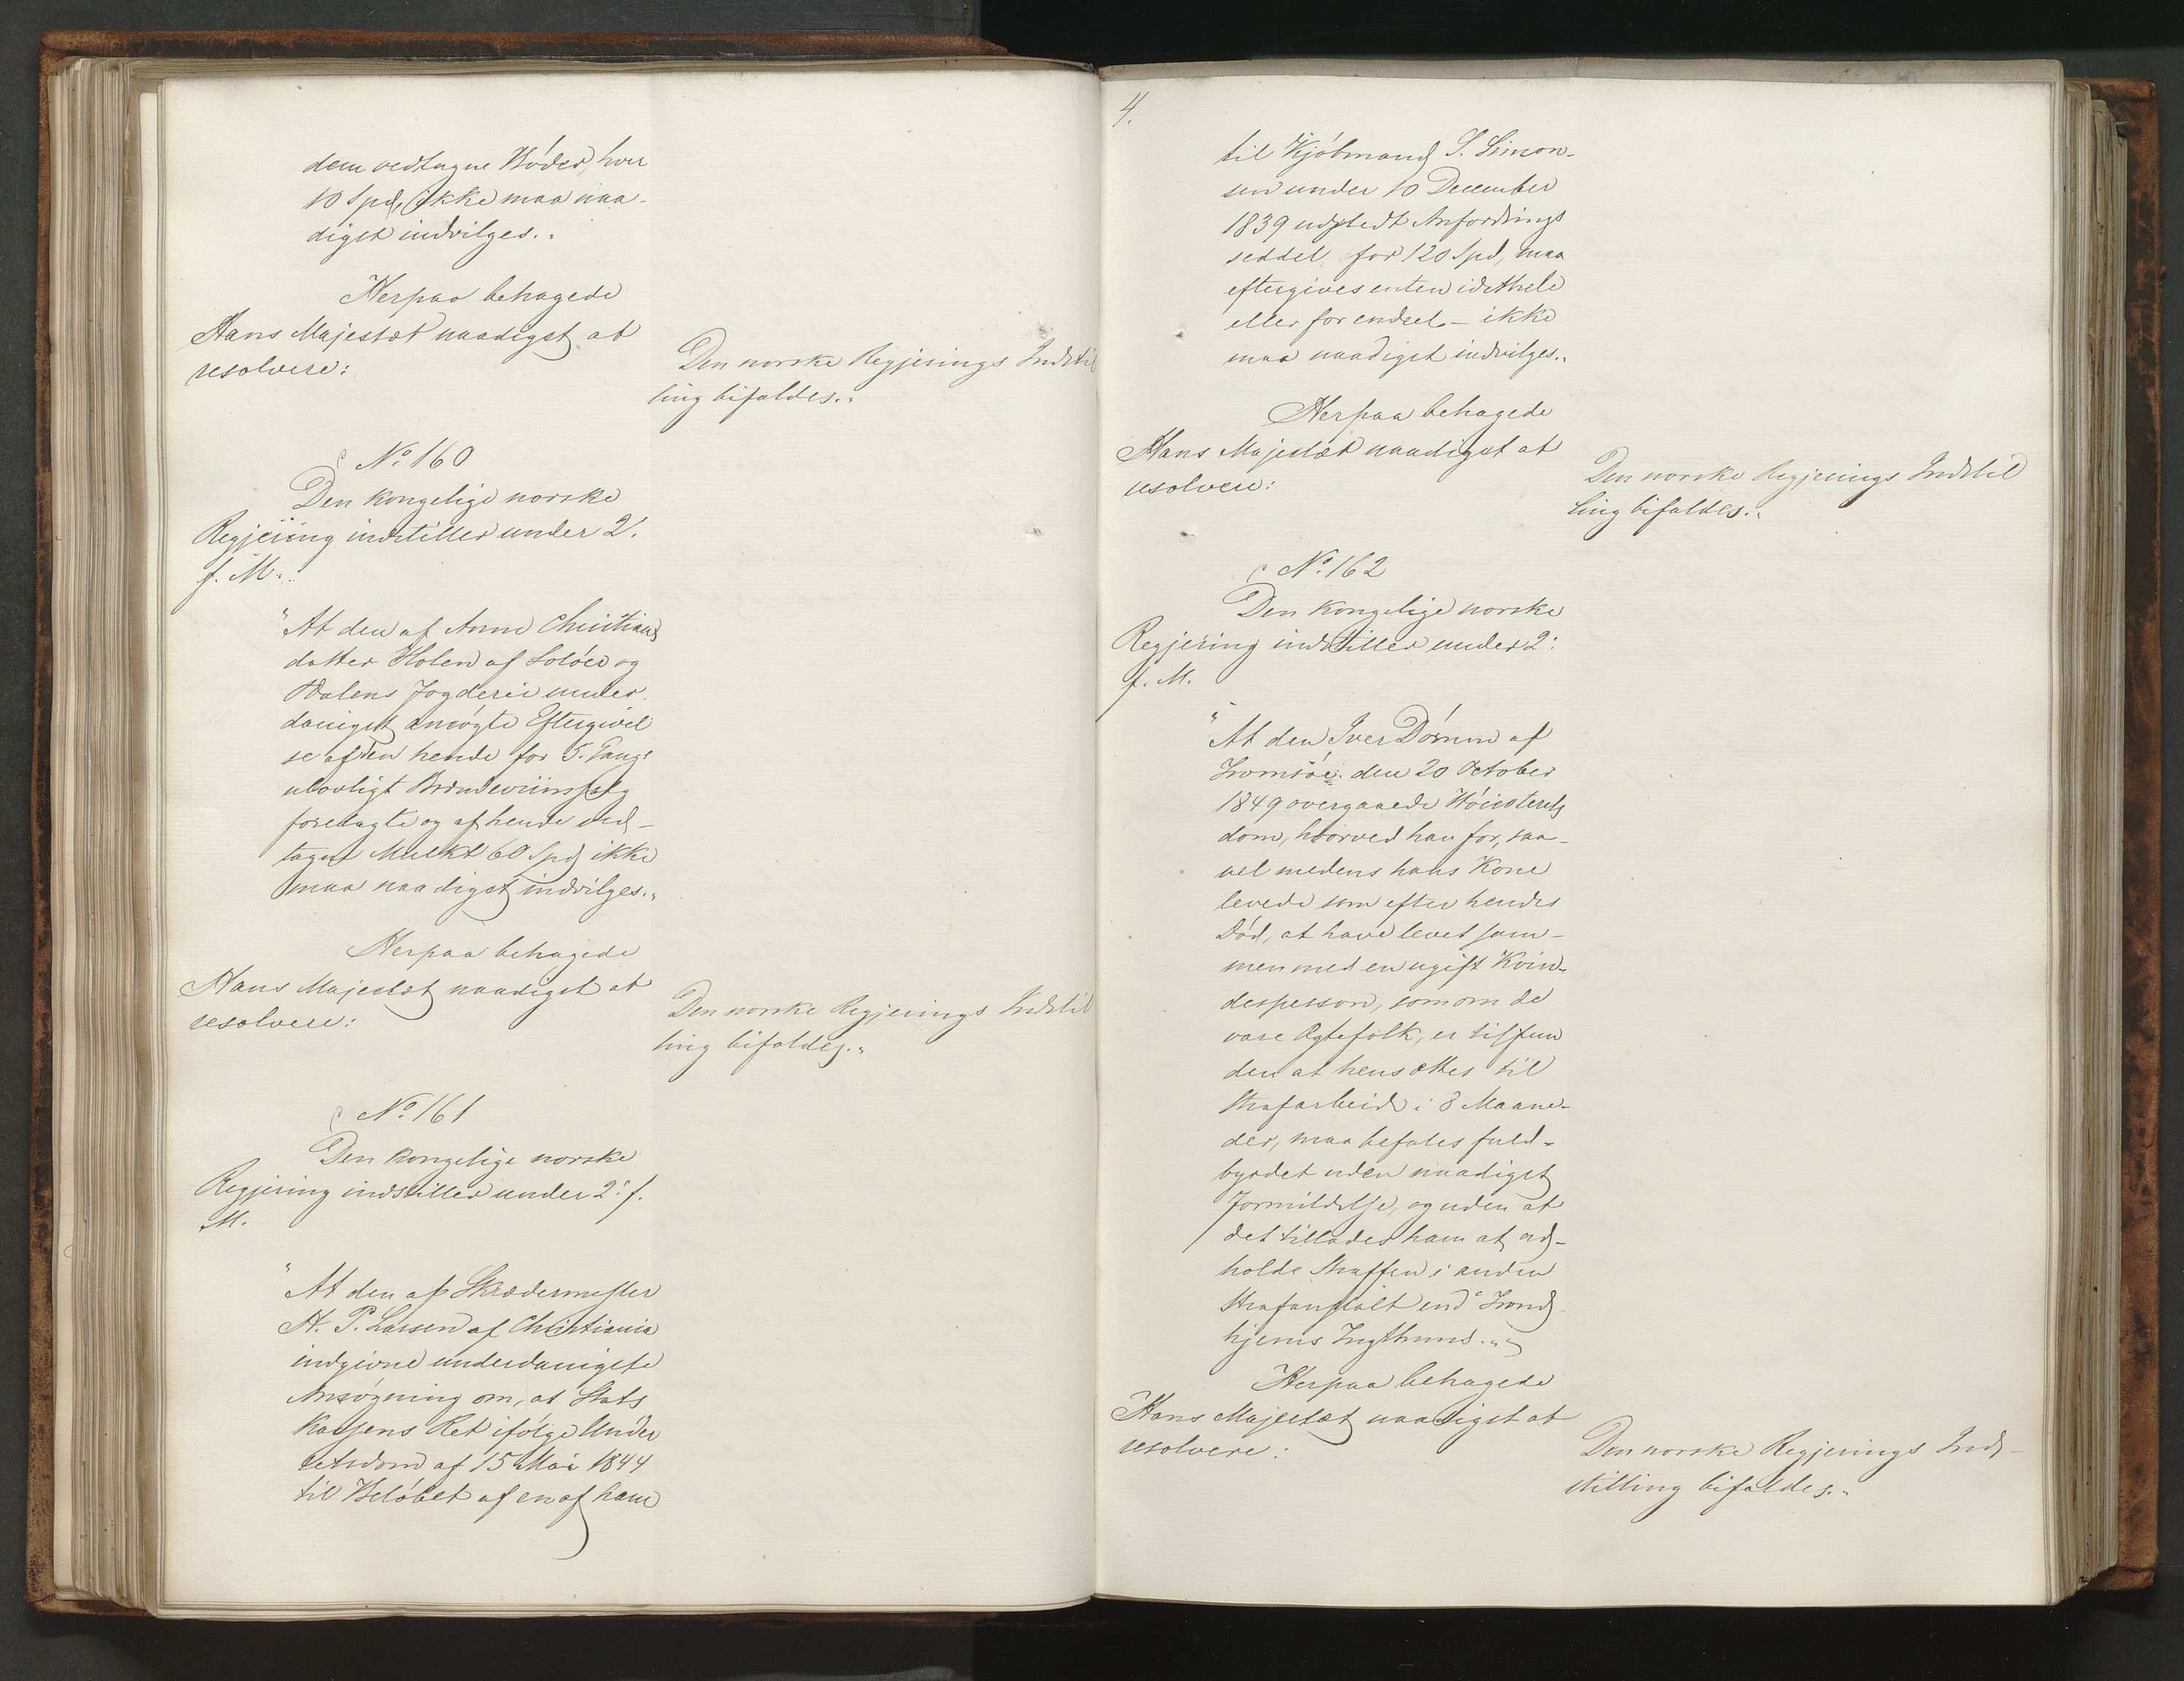 dem vedtagne Bøder, hver
10 Spd, ikke maa naa-
digst indvilges.„
Herpaa behagede
Hans Majestæt naadigst at
resolvere:
Den norske Regjerings Indstil
ling bifaldes.„
No 160
Den kongelige norske
Regjering indstiller under 2'
f. M.:
"At den af Anne Christians
datter Holen af Soløer og
Odalens Fogderie under-
danigst ansøgte Eftergivel
se af den hende for 5. Gangs
ulovligt Brændeviinssalg
forelagte og af hende ved-
tagne Mulkt 60 Spd ikke
maa naadigst indvilges.„
Herpaa behagede
Hans Majestæt naadigst at
resolvere:
Den norske Regjerings Indstil
ling bifaldes.„
No 161
Den kongelige norske
Regjering indstiller under 2' f.
M.
"At den af Skrædermester
H. P. Larsen af Christiania
indgivne underdanigste
Ansøgning om, at Stats
kassens Ret ifølge Under
retsdom af 15 Mai 1844
til Beløbet af en af ham
4.
til Kjøbmand S. Simon-
sen under 10 December
1839 udstedt Anfordrings
seddel for 120 Spd, maa
eftergives enten idethele
eller for endeel – ikke
maa naadigst indvilges.„
Herpaa behagede
Hans Majestæt naadigst at
resolvere:
Den norske Regjerings Indstil
ling bifaldes.„
No 162
Den kongelige norske
Regjering indstiller under 2'
f. M.
"At den Iver Dørum af
Tromsøe den 20 October
1849 overgaaede Høiesterets
dom, hvorved han for, saa-
vel medens hans Kone
levede som efter hendes
Død, at have levet sam-
men med en ugift Kvin-
desperson, som om de
vare Ægtefolk, er tilfun
den at hensættes til
Strafarbeide i 8 Maane-
der, maa befales fuld-
byrdet uden naadigst
Formildelse, og uden at
det tillades ham at ud-
holde Straffen i anden
Strafanstalt end Trond-
hjems Tugthuus.„
Herpaa behagede
Hans Majestæt naadigst at
resolvere:
Den norske Regjerings Ind-
stilling bifaldes.„